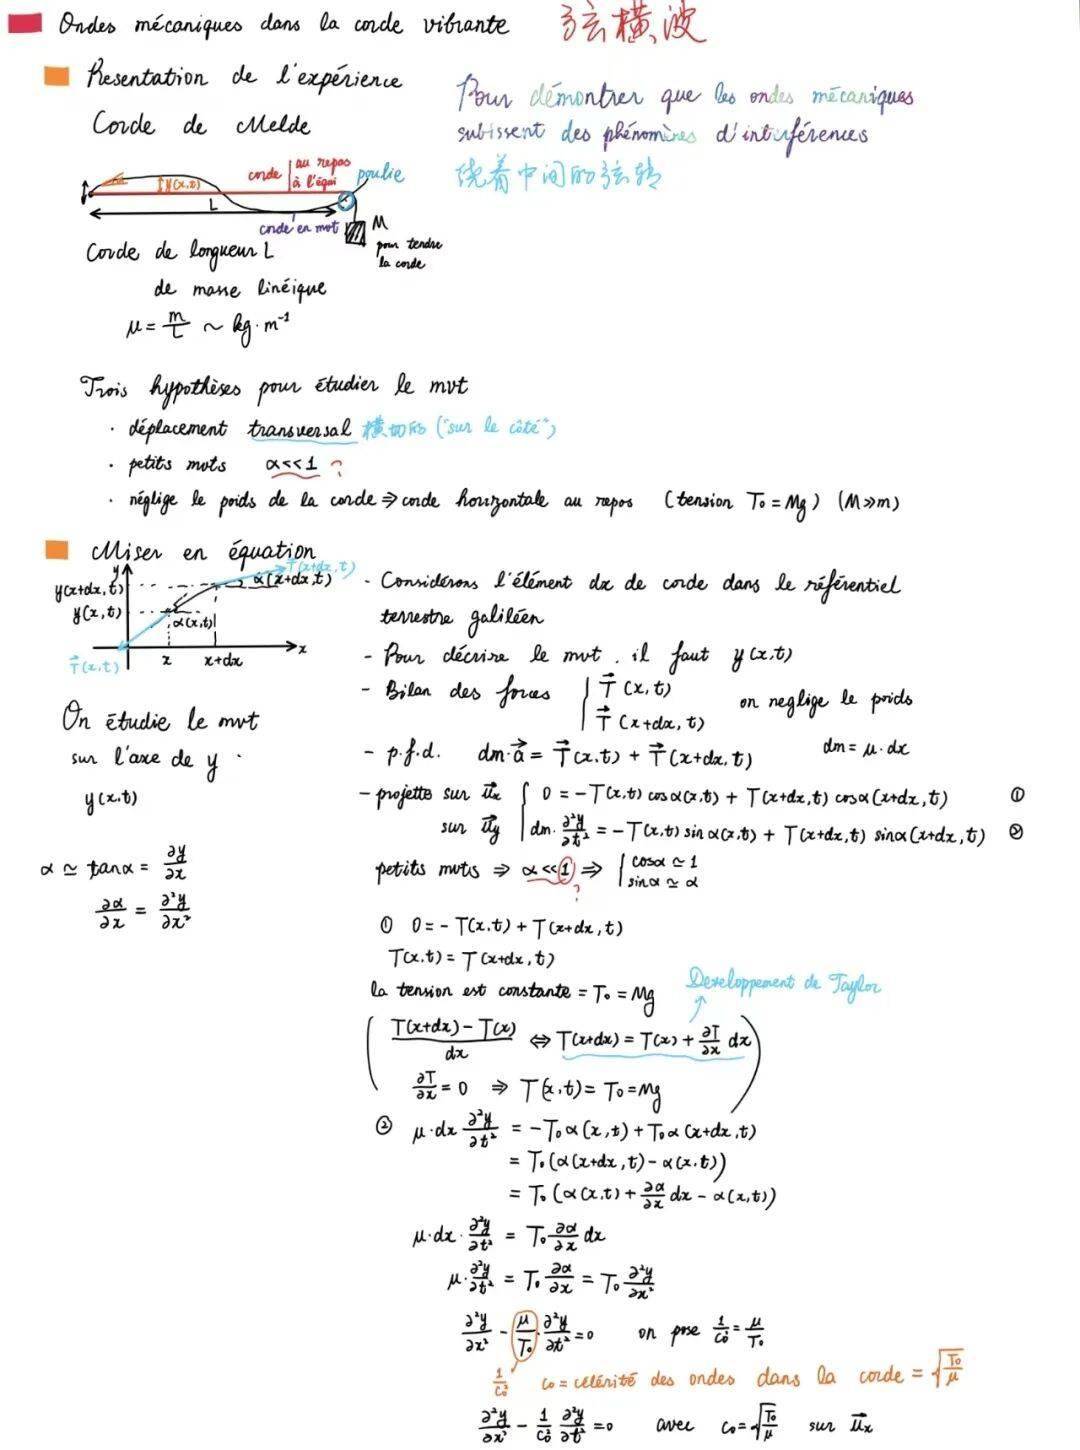 Ondes mécaniques dans la corde vibrante 弦横波
Presentation de l'expérience
Corde de Melde
Pour démontrer que les ondes mécaniques
subissent des phénomènes d'intérférences
绕着中间的弦转
corde au repos
à l'équi
poulie
y(x,t)
L
corde en mvt
M
pour tendre
la corde
Corde de longueur L
de masse linéique
μ = m/L ~ kg·m⁻¹
Trois hypothèses pour étudier le mvt
· déplacement transversal 横切的 ("sur le côté")
· petits mvts α<<1 ?
· néglige le poids de la corde ⇒ corde horizontale au repos (tension T₀ = Mg) (M>>m)
Miser en équation
y
T⃗(x+dx,t)
y(x+dx,t)
α(x+dx,t)
y(x,t)
α(x,t)
T⃗(x,t)
x
x+dx
x
On étudie le mvt
sur l'axe de y.
y(x,t)
α ≃ tanα = ∂y/∂x
∂α/∂x = ∂²y/∂x²
- Considérons l'élément dx de corde dans le référentiel
terrestre galiléen
- Pour décrire le mvt, il faut y(x,t)
- Bilan des forces { T⃗(x,t)
T⃗(x+dx,t)
on neglige le poids
- p.f.d. dm·a⃗ = T⃗(x,t) + T⃗(x+dx,t)
dm = μ·dx
- projette sur u⃗x { 0 = -T(x,t) cosα(x,t) + T(x+dx,t) cosα(x+dx,t) ①
sur u⃗y dm·∂²y/∂t² = -T(x,t) sinα(x,t) + T(x+dx,t) sinα(x+dx,t) ②
petits mvts ⇒ α<<1 ⇒ { cosα ≃ 1
sinα ≃ α
?
① 0 = -T(x,t) + T(x+dx,t)
T(x,t) = T(x+dx,t)
la tension est constante = T₀ = Mg
Developpement de Taylor
( T(x+dx) - T(x) / dx ⇔ T(x+dx) = T(x) + ∂T/∂x dx
∂T/∂x = 0 ⇒ T(x,t) = T₀ = Mg )
② μ·dx ∂²y/∂t² = -T₀α(x,t) + T₀α(x+dx,t)
= T₀(α(x+dx,t) - α(x,t))
= T₀(α(x,t) + ∂α/∂x dx - α(x,t))
μ·dx·∂²y/∂t² = T₀ ∂α/∂x dx
μ·∂²y/∂t² = T₀ ∂α/∂x = T₀ ∂²y/∂x²
∂²y/∂x² - μ/T₀·∂²y/∂t² = 0 on pose 1/c₀² = μ/T₀
1/c₀² c₀ = célérité des ondes dans la corde = √(T₀/μ)
∂²y/∂x² - 1/c₀² ∂²y/∂t² = 0 avec c₀ = √(T₀/μ) sur u⃗x